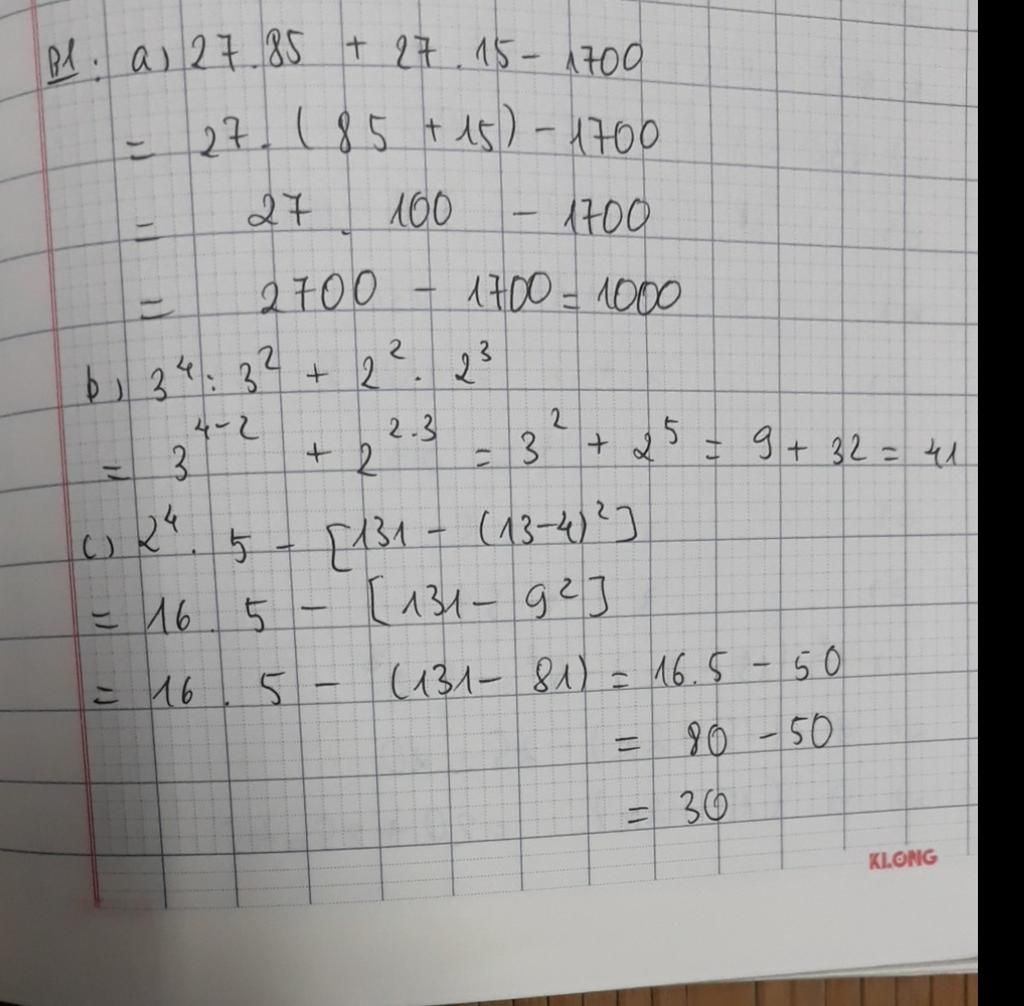 B1: a) 27.85 + 27.15 - 1700
= 27.(85 + 15) - 1700
= 27.100 - 1700
= 2700 - 1700 = 1000
b) 3⁴ : 3² + 2² . 2³
= 3⁴⁻² + 2²·³ = 3² + 2⁵ = 9 + 32 = 41
c) 2⁴ . 5 - [131 - (13-4)²]
= 16 . 5 - [131 - 9²]
= 16 . 5 - (131 - 81) = 16.5 - 50
= 80 - 50
= 30
KLONG